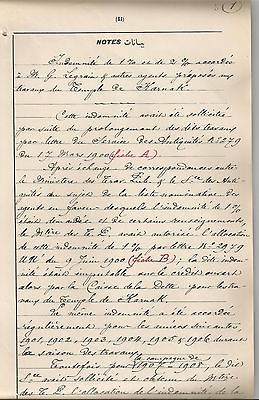 (1)
(51)
NOTES بيانات
Indemnité de 1% et de 2% accordée
à M. G. Legrain & autres agents préposés aux
travaux du Temple de Karnak.
Cette indemnité avait été sollicitée
par suite du prolongement des dits travaux
par lettre du Service des Antiquités
du 17 Mars 1900 (fiche A)
Après échange de correspondances entre
le Ministère des Trav. Pub. & le Sce des
du sujet de la liste nominative des
agents en faveur desquels l'indemnité de 1%
était demandée et de certains renseignements
le Mtère des T. P. avait autorisé l'allocation
de cette indemnité de 1% par lettre No 2979
du 9 Juin 1900 (fiche B); la dite indem-
nité étant imputable sur le crédit ouvert
alors par la Caisse de la Dette pour les tra-
vaux du Temple de Karnak.
La même indemnité a été accordée
régulièrement pour les années suivantes,
1901, 1902, 1903, 1904, 1905 & 1906 durant
la saison des travaux.
Toutefois pour la campagne de 1907 - 1908, le dit
Sce avait sollicité et obtenu du Mtère
des T. P. l'allocation de l'indemnité de la